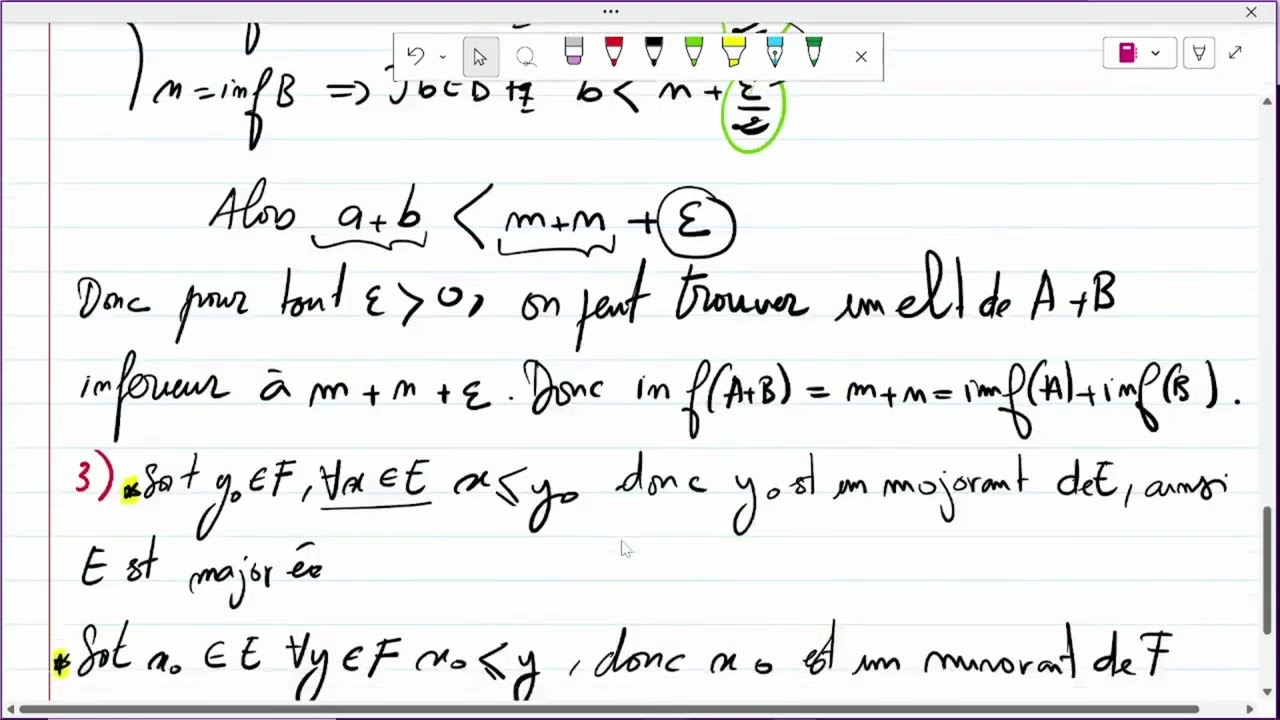 n = inf B => ∃b∈B tq b < n + ε/2
Alors a+b < m+n + ε
Donc pour tout ε > 0, on peut trouver un elt de A+B
inferieur à m + n + ε. Donc inf(A+B) = m+n = inf(A)+inf(B).
3) * Soit y₀ ∈ F, ∀x ∈ E x ≤ y₀ donc y₀ est un majorant de E, ainsi
E est majorée
* Soit x₀ ∈ E ∀y ∈ F x₀ ≤ y, donc x₀ est un minorant de F